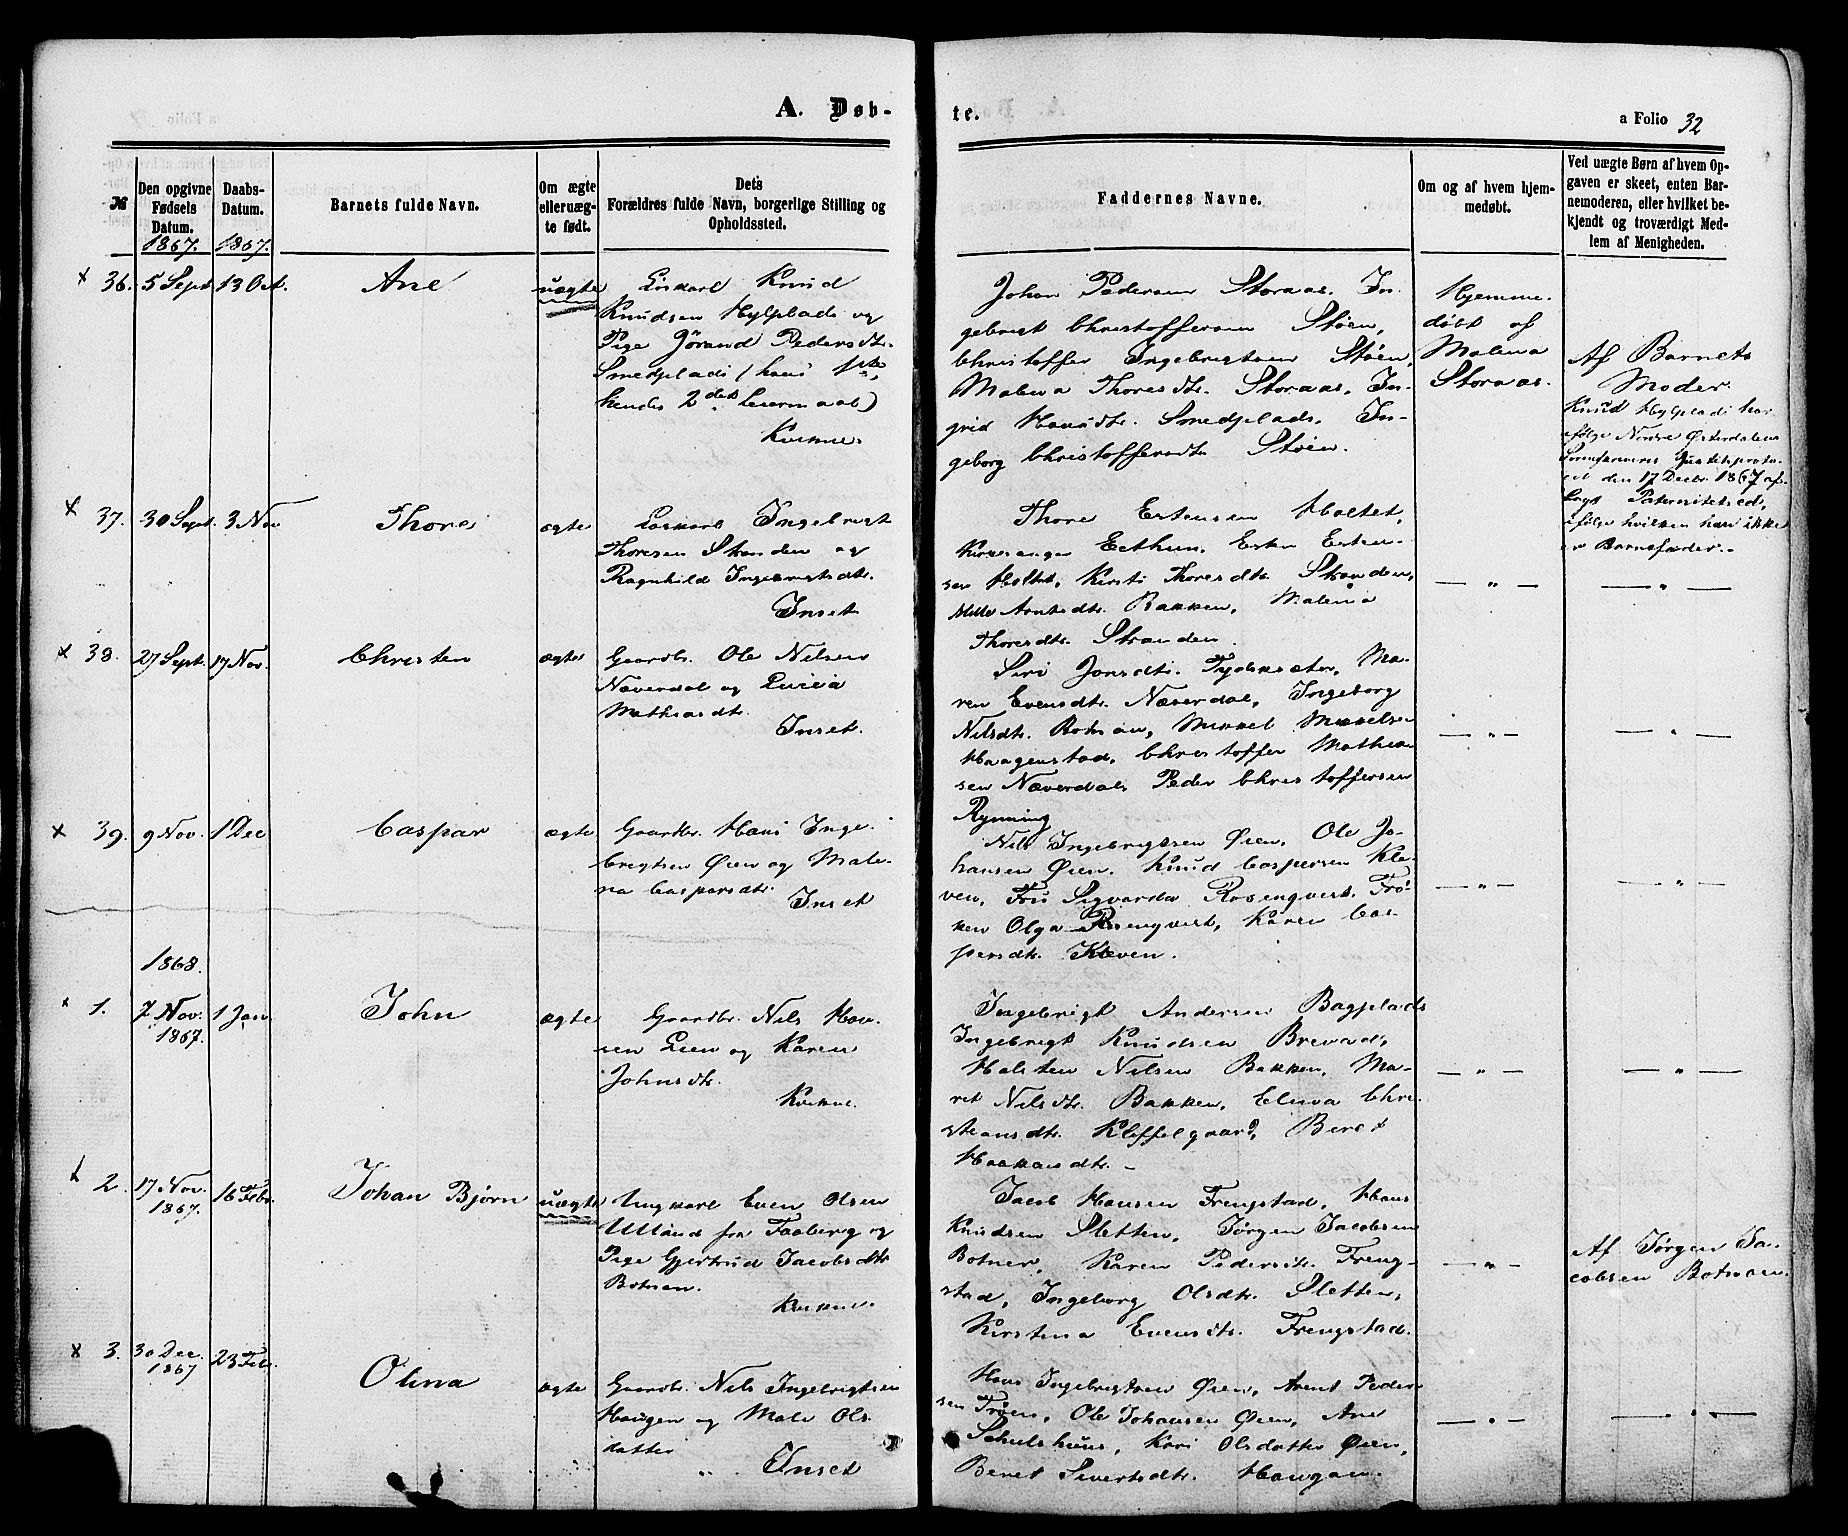 A. Døb-
te.
a Folio 32
№
Den opgivne Fødsels Datum.
1867.
Daabs-Datum.
1867.
Barnets fulde Navn.
Om ægte eller uæg-te født.
Dets
Forældres fulde Navn, borgerlige Stilling og
Opholdssted.
Faddernes Navne.
Om og af hvem hjem-
medøbt.
Ved uægte Børn af hvem Op-
gaven er skeet, enten Bar-
nemoderen, eller hvilket be-
kjendt og troværdigt Med-
lem af Menigheden.
x 36. 5 Sept 13 Oct. Ane uægte
Løskarl Knud
Knudsen Hylplads og
Pige Jörand Pedersdtr.
Smedplads (hans 1ste,
hendes 2det Leiermaal)
Kvikne.
Johan Pedersen Storaas. In-
gebrigt Christoffersen Stöen,
Christoffer Ingebrigtsen Stöen,
Malena Thoresdtr. Storaas, In-
grid Hansdtr. Smedplads, In-
geborg Christoffersdtr Stöen.
Hjemme-
døbt af
Malena
Storaas.
Af Barnets
Moder.
Knud Hylplads har
ifølge Nordre Østerdalens
Sorenskriveres Justitsproto-
col den 17 Decbr 1867 af-
lagt Paternitetsed,
ifølge hvilken han ikke
er Barnefader.-
x 37. 30 Sept. 3 Nov Thore ægte
Løskarl Ingebrigt
Thoresen Stranden og
Ragnhild Ingebrigtsdtr.
Inset
Thore Estensen Holtet,
Kirkesanger Eithun, Esten Esten-
sen Holtet, Kirsti Thoresdtr. Stranden,
Mille Arntsdtr. Bakken, Malena
Thoresdtr. Stranden.
— " — — " —
x 38. 27 Sept. 17 Nov. Christen ægte
Gaardbr. Ole Nilsen
Næverdal og Lucia
Mathiasdtr.
Inset.
Siri Jonsdtr. Tydsksæter, Ma-
ren Evensdtr. Næverdal, Ingeborg
Nilsdtr. Botnan, Mikkel Mikkelsen
Haagenstad, Christoffer Mathia-
sen Næverdal, Peder Christoffersen
Rynning
— " — — " —
x 39. 9 Nov. 1 Dec Caspar ægte
Gaardbr. Hans Inge-
brigtsen Øien og Male-
na Caspersdtr.
Inset
Nils Ingebrigtsen Øien, Ole Jo-
hansen Øien, Knud Caspersen Kle-
ven, Fru Sigvarda Rosenqvist, Frö-
ken Olga Rosenqvist, Karen Cas-
persdtr. Kleven.
— " — — " —
1868.
x 1. 7 Nov. 1867. 1 Jan John ægte
Gaardbr. Nils Han-
sen Lien og Karen
Johnsdtr.
Kvikne.
Ingebrigt Andersen Bagplads
Ingebrigt Knudsen Brevad,
Halsten Nilsen Bakken, Ma-
rit Nilsdtr. Bakken, Elina Chri-
stiansdtr. Kleffelgaard, Beret
Haakansdtr. -
— " — — " —
x 2. 17 Nov. 1867. 16 Febr. Johan Bjørn uægte
Ungkarl Even Olsen
Ulland fra Faaberg og
Pige Gjertrud Jacobsdtr
Botnan.
Kvikne.
Jacob Hansen Frengstad, Hans
Knudsen Sletten, Jörgen Jacobsen
Botner, Karen Pedersdtr. Freng-
stad, Ingeborg Olsdtr. Sletten,
Kirstena Evensdtr. Frengstad.
— " —
Af Jörgen Ja-
cobsen Botnan.
x 3. 30 Dec. 1867 23 Feb. Olina ægte
Gaardbr. Nils Ingebrigtsen
Haugen og Mali Ols-
datter
" Inset
Hans Ingebrigtsen Øien, Arent Peder-
sen Tröen, Ole Johansen Øien, Ane
Schulshuus, Kari Olsdatter Øien,
Beret Sivertsdtr. Haugan.
— " — — " —